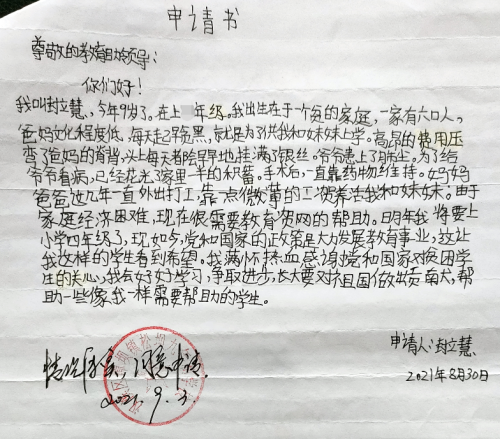 申请书
尊敬的教育局领导：
你们好！
我叫封立慧，今年9岁了。在上 年级。我出生在于一个贫的家庭，一家有六口人，
爸妈文化程度低，每天起早贪黑，就是为了供我和妹妹上学。高昂的费用压
弯了爸妈的脊背，头上每天都险早地挂满了银丝。爷爷患上了肺尘。为了给
爷爷看病，已经花光了家里一半的积蓄。手术后，一直靠药物维持。妈妈
爸爸这几年一直外出打工，靠一点微薄的工资养活我和妹妹。由
家庭经济困难，现在很需要教育资网的帮助。明年我将要上
小学四年级了，现如今，党和国家的政策是大力发展教育事业，这让
我这样的学生看到希望。我满怀热血感谢党和国家对贫困学
生的关心，我会好好学习，争取进步，长大要对祖国做出贡献，帮
助一些像我一样需要帮助的学生。
申请人：封立慧
2021年8月30日
情况属实，同意申请。
2021.9.3.